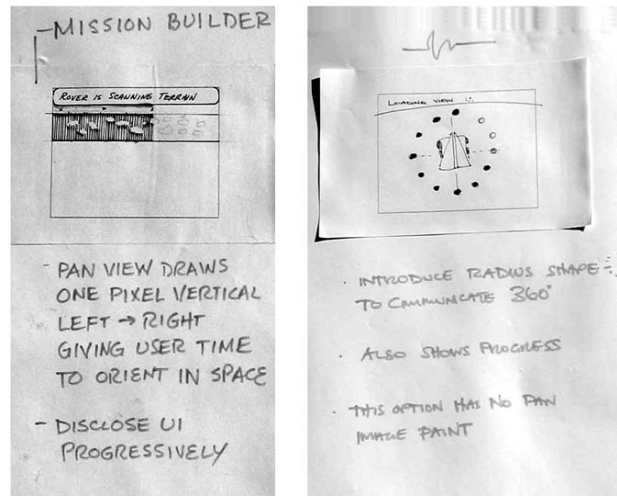 - MISSION BUILDER
ROVER IS SCANNING TERRAIN
- PAN VIEW DRAWS
ONE PIXEL VERTICAL
LEFT → RIGHT
GIVING USER TIME
TO ORIENT IN SPACE
- DISCLOSE UI
PROGRESSIVELY
LOADING VIEW
· INTRODUCE RADIUS SHAPE
TO COMMUNICATE 360°
· ALSO SHOWS PROGRESS
· THIS OPTION HAS NO PAN
IMAGE PAINT